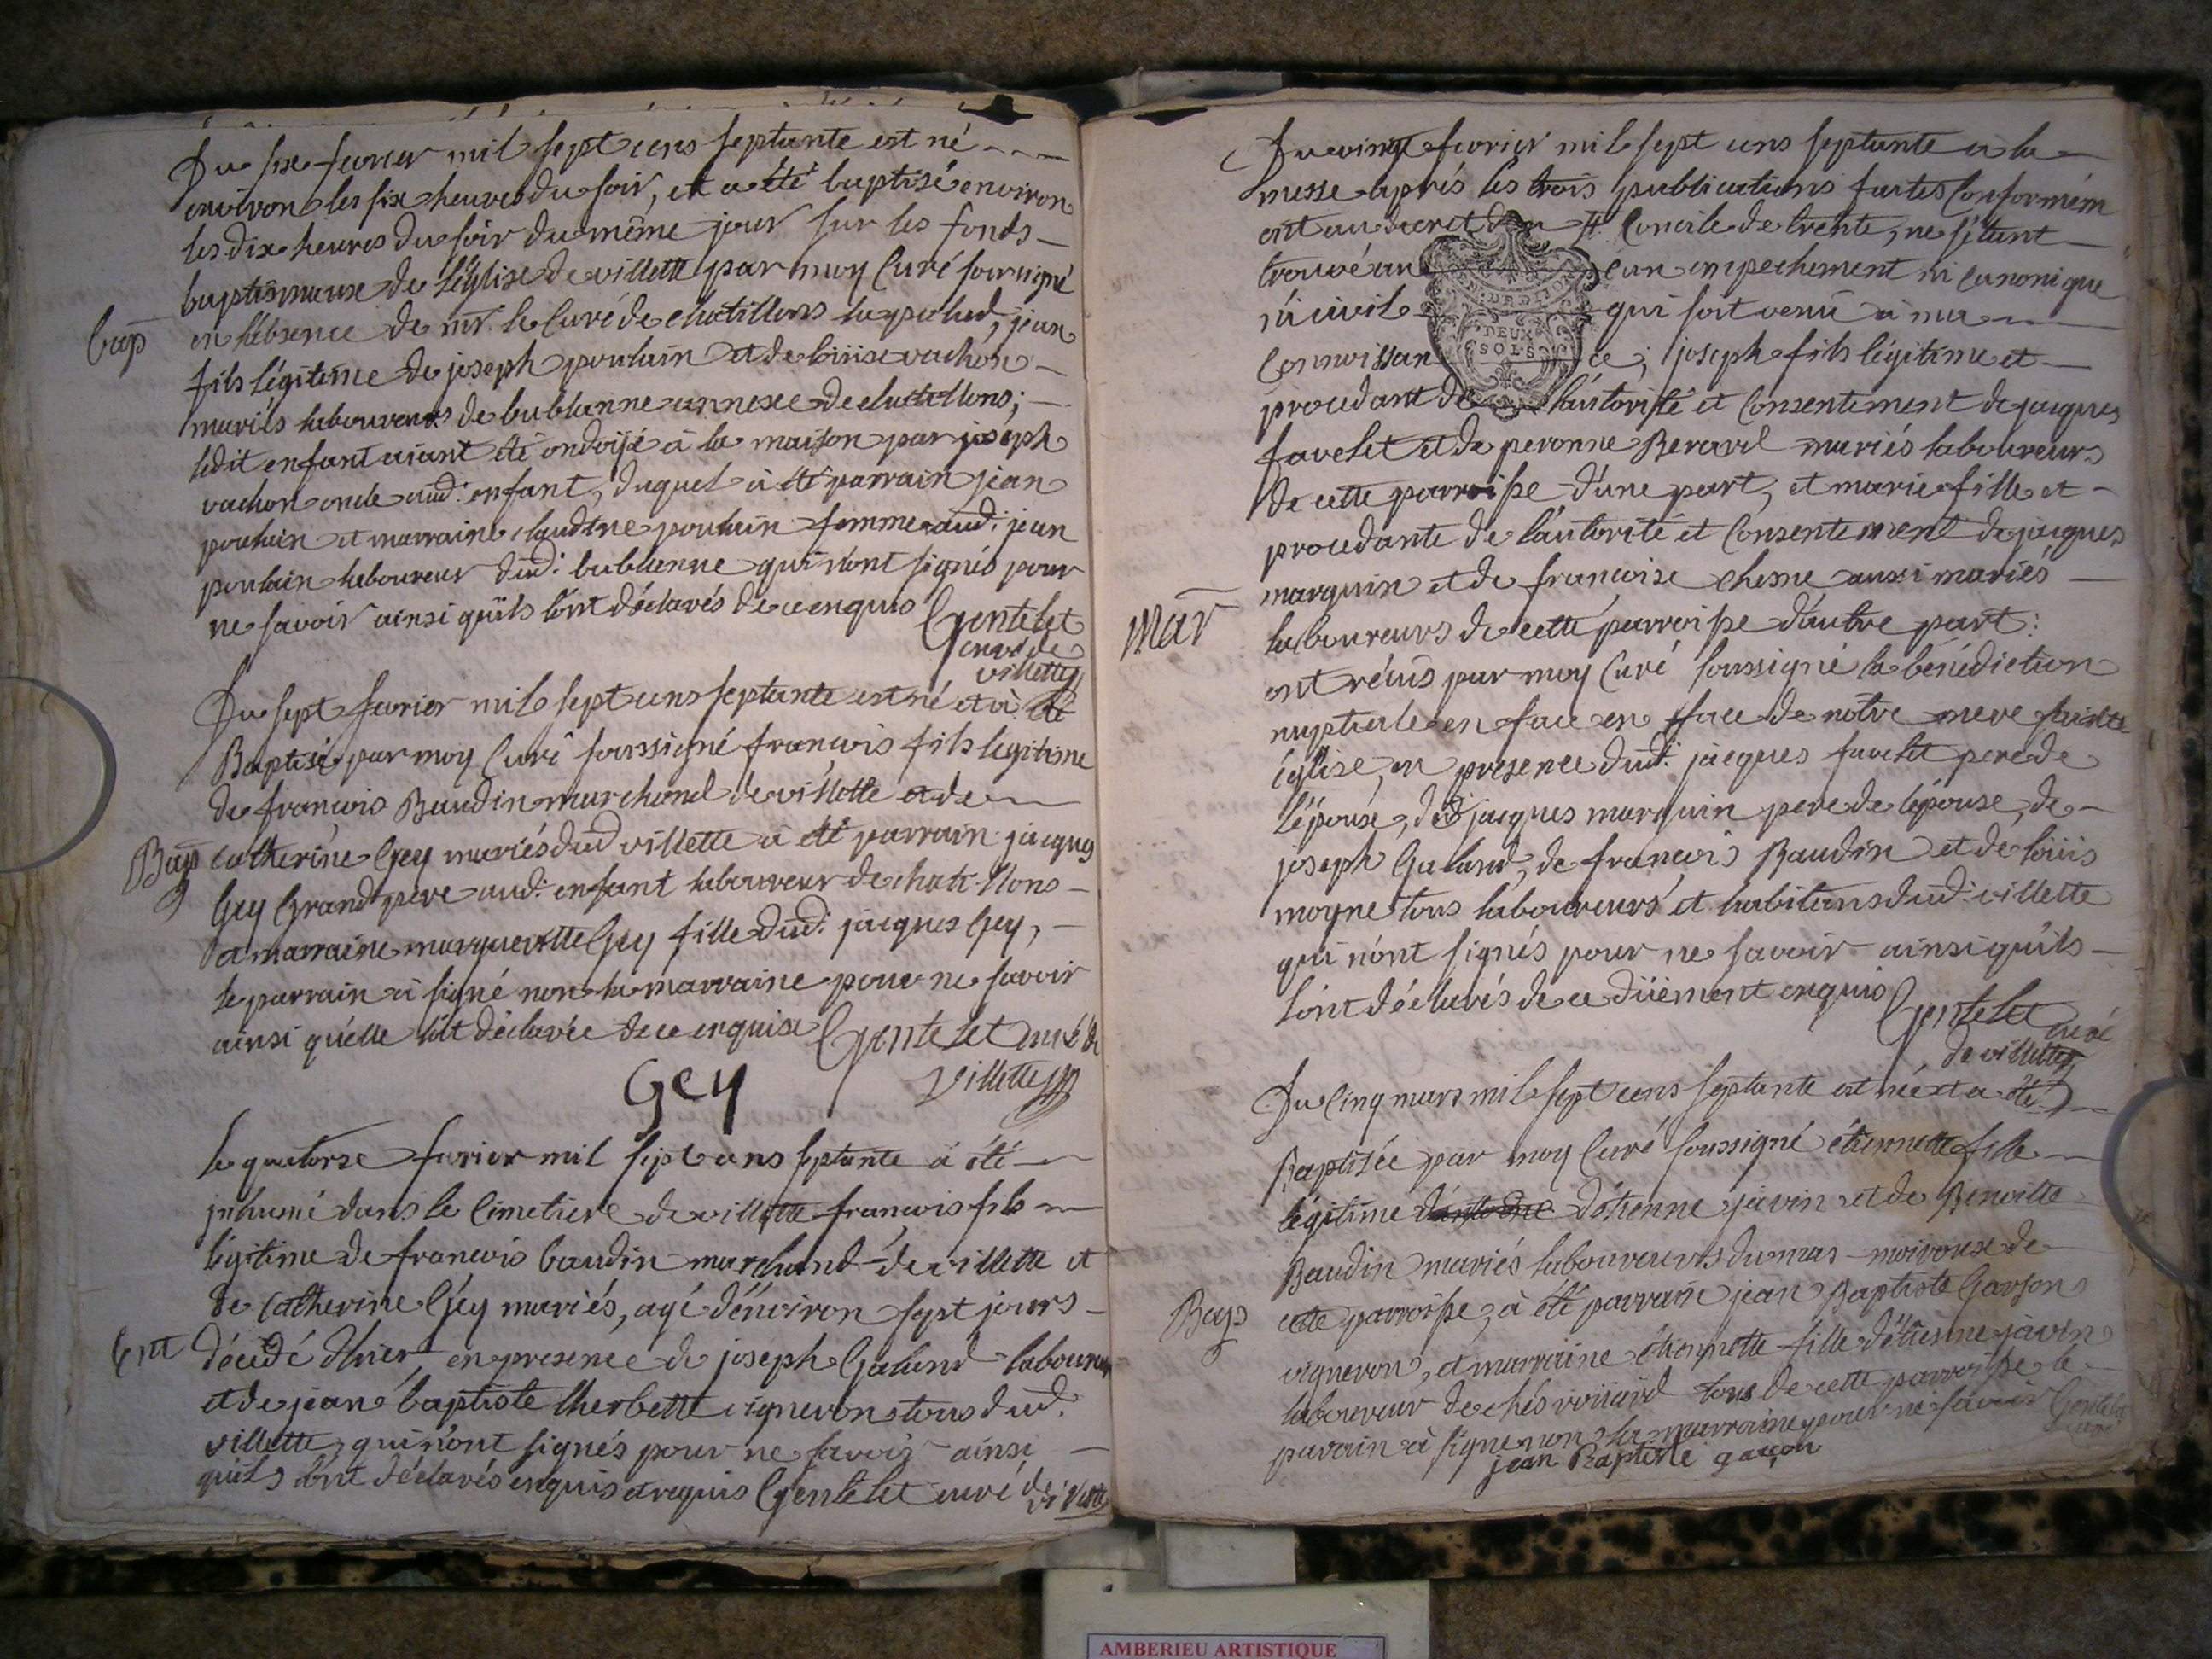 Du six fevrier mil sept cens septante est né
environ les six heures du soir, et a été baptisé environ
les dix heures du soir du même jour sur les fonds
baptismeaux de l'église de villette par moy Curé soussigné
Bap
en l'absence de mr. le Curé de chatillons la palud, jean
fils légitime de joseph poulain et de loüise vachon
mariés laboureurs de bublanne annexe de chatillons;
ledit enfant aiant été ondoijé à la maison par joseph
vachon oncle aud: enfant, duquel à été parrain jean
poulain et marraine claudine poulain femme aud: jean
poulain laboureur dud: bublanne qui n'ont signés pour
ne savoir ainsi qu'ils l'ont déclarés de ce enquis Gentelet
curé de
villette
Du sept fevrier mil sept cens septante est né et à été
Baptisé par moy Curé soussigné francois fils legitime
de francois Baudin marchand de villette et de
Bap
catherine Gey mariés dud villette à été parrain jacques
Gey Grand pere aud: enfant laboureur de chatillons
et marraine margueritte Gey fille dud: jacques Gey,
le parrain à signé non la marraine pour ne savoir
ainsi qu'elle l'at déclarée de ce enquise Gentelet curé de
Gey villette
le quatorze fevrier mil sept cens septante à été
inhumé dans le Cimetiere de villette francois fils
légitime de francois baudin marchand de villette et
de catherine Gey mariés, agé d'environ sept jours
Ent
décédé d'hier, en presence de joseph Galand laboureur
et de jean baptiste lherbette vigneron tous dud.
villette, qui n'ont signés pour ne savoir ainsi
qu'ils l'ont déclarés enquis et requis Gentelet curé de
villette
Du vingt fevrier mil sept cens septante à la
messe après les trois publications faites Conformém
ent au decret du st Concile de trente, ne s'étant
trouvé au cun empechement ni canonique
ni civil qui soit venu à ma
Connoissan ce; joseph fils légitime et
DEUX
SOLS
procedant de l'autorité et Consentement de jacques
favelet et de peronne Berard mariés laboureurs
de cette parroisse d'une part, et marie fille et
procedante de l'autorité et Consentement de jacques
marquin et de francoise chesne aussi mariés
Mar
laboureurs de cette parroisse d'autre part:
ont réçus par moy Curé soussigné la bénédiction
nuptiale en face en face de nôtre mere sainte
église, en presence dud: jacques favelet pere de
l'épouse, dud jacques marquin pere de l'épouse, de
joseph Galand, de francois Baudin et de loüis
moyne tous laboureurs et habitans dud: villette
qui n'ont signés pour ne savoir ainsi qu'ils
l'ont déclarés de ce düement enquis Gentelet curé
de villette
Du Cinq mars mil sept cens septante est née et a été
Baptisée par moy Curé soussigné étiennette fille
légitime d'étienne javin et de Benoitte
Baudin mariés laboureurs du mas moiroux de
Bap
cette parroisse, à été parrain jean Baptiste Garson
vigneron, et marraine étiennette fille d'étienne javin
laboureur de chés tous de cette parroisse le
parrain à signé non la marraine pour ne savoir Gentelet
curé
jean Baptiste garçon
AMBERIEU ARTISTIQUE